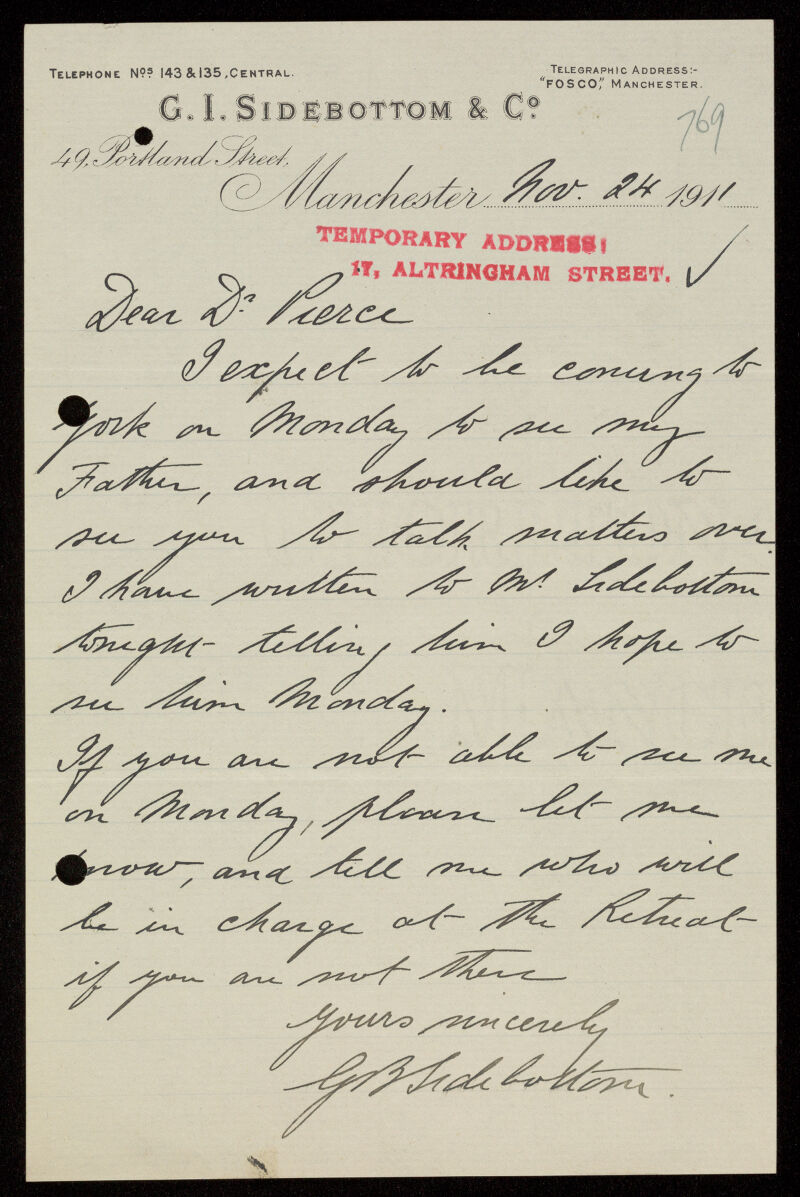 TELEPHONE Nos 143 & 135, CENTRAL.
TELEGRAPHIC ADDRESS:-
"FOSCO", MANCHESTER.
G. I. SIDEBOTTOM & Co.
769
49, Portland Street,
Manchester Nov. 24 1911
TEMPORARY ADDRESS:
17, ALTRINGHAM STREET.
Dear Dr Pierce
I expect to be coming to
York on Monday to see my
Father, and should like to
see you to talk matters over.
I have written to Mr Sidebottom
tonight telling him I hope to
see him Monday.
If you are not able to see me
on Monday, please let me
know, and tell me who will
be in charge at the Retreat
if you are not there
Yours sincerely
G B Sidebottom.